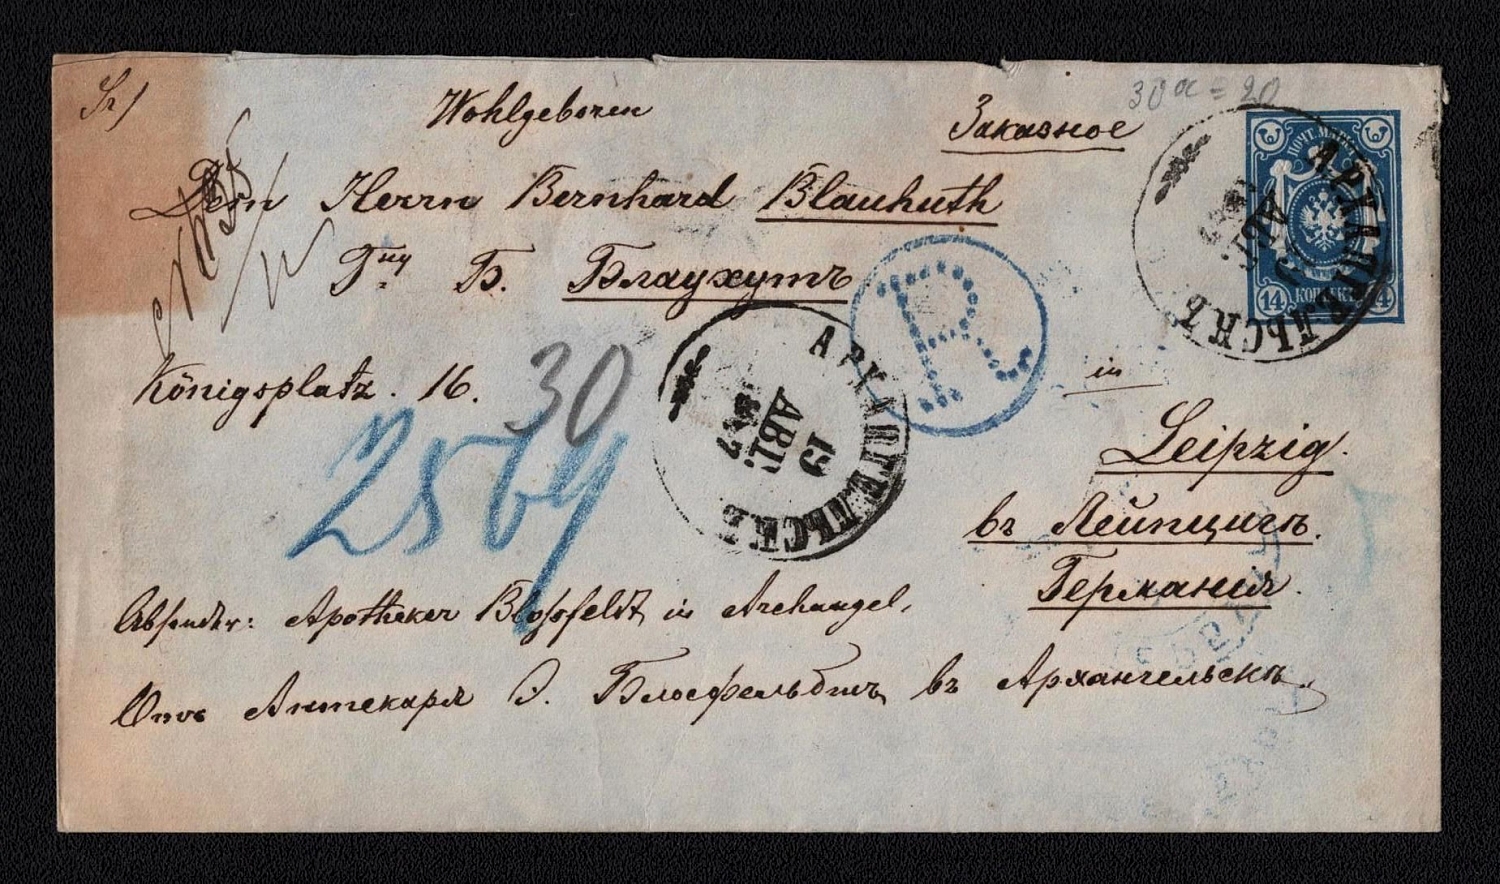 Wohlgeboren
30 a = 20
Заказное
Dem Herrn Bernhard Blauhuth
Гну Б. Блаухутъ
R
ПОЧТ. МАРКА
14 КОПѢЕКЪ 14
АРХАНГЕЛЬСКЪ
19 АВГ
АРХАНГЕЛЬСКЪ
19 АВГ
Königsplatz. 16.
30
2564
in
Leipzig.
въ Лейпцигъ.
Германия.
Absender: Apotheker Blossfeldt, in Archangel,
Отъ Аптекаря Э. Блосфельдтъ, въ Архангельскѣ,